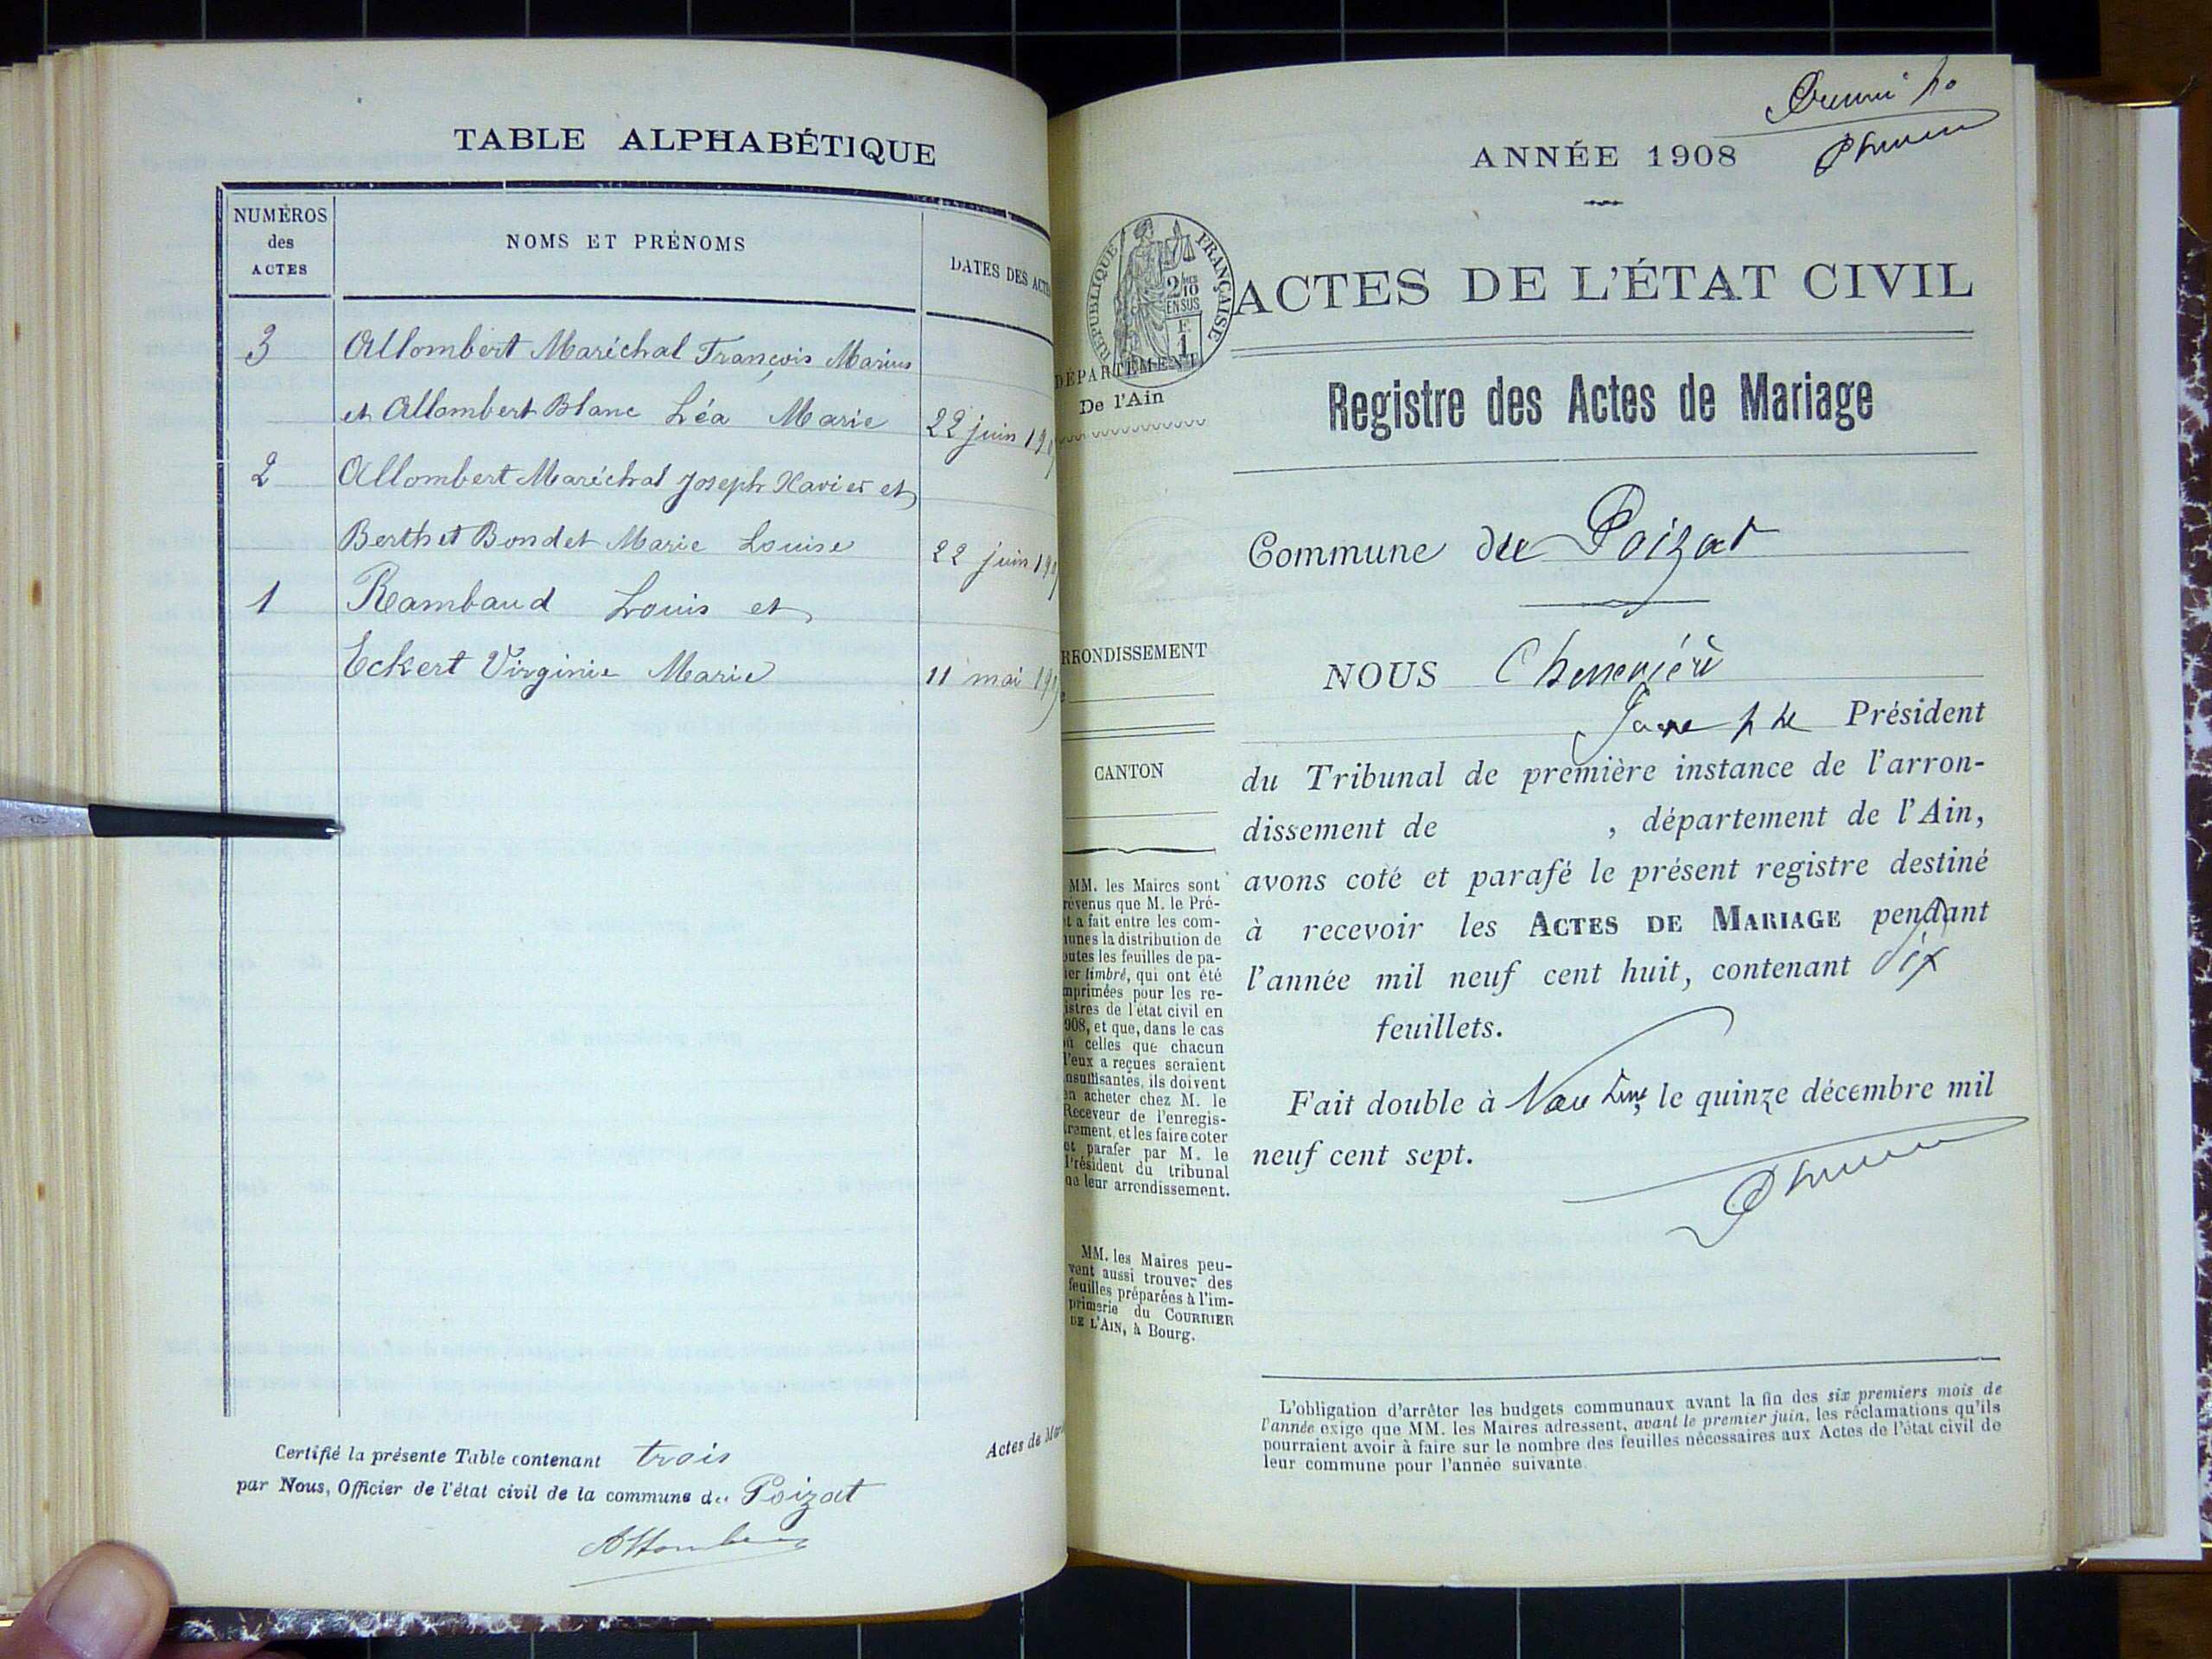 TABLE ALPHABÉTIQUE
NUMÉROS
des
ACTES
NOMS ET PRÉNOMS
DATES DES ACTES
3 Allombert Maréchal François Marius
et Allombert Blanc Léa Marie 22 juin 19
2 Allombert Maréchal Joseph Xavier et
Berthet Bondet Marie Louise 22 juin 19
1 Rambaud Louis et
Eckert Virginie Marie 11 mai 19
Certifié la présente Table contenant trois
par Nous, Officier de l'état civil de la commune du Poizat
Actes de Mar
ANNÉE 1908
RÉPUBLIQUE FRANÇAISE
2/10
EN SUS
F
1
ACTES DE L'ÉTAT CIVIL
DÉPARTEMENT
De l'Ain
Registre des Actes de Mariage
Commune du Poizat
RRONDISSEMENT
CANTON
MM. les Maires sont
révenus que M. le Pré-
t a fait entre les com-
unes la distribution de
outes les feuilles de pa-
ier timbré, qui ont été
mprimées pour les re-
istres de l'état civil en
908, et que, dans le cas
ù celles que chacun
l'eux a reçues seraient
nsuffisantes, ils doivent
en acheter chez M. le
Receveur de l'enregis-
trement, et les faire coter
et parafer par M. le
Président du tribunal
de leur arrondissement.
MM. les Maires peu-
vent aussi trouver des
feuilles préparées à l'im-
primerie du COURRIER
DE L'AIN, à Bourg.
NOUS
Président
du Tribunal de première instance de l'arron-
dissement de , département de l'Ain,
avons coté et parafé le présent registre destiné
à recevoir les ACTES DE MARIAGE pendant
l'année mil neuf cent huit, contenant
feuillets.
Fait double à Nantua, le quinze décembre mil
neuf cent sept.
L'obligation d'arrêter les budgets communaux avant la fin des six premiers mois de
l'année exige que MM. les Maires adressent, avant le premier juin, les réclamations qu'ils
pourraient avoir à faire sur le nombre des feuilles nécessaires aux Actes de l'état civil de
leur commune pour l'année suivante.